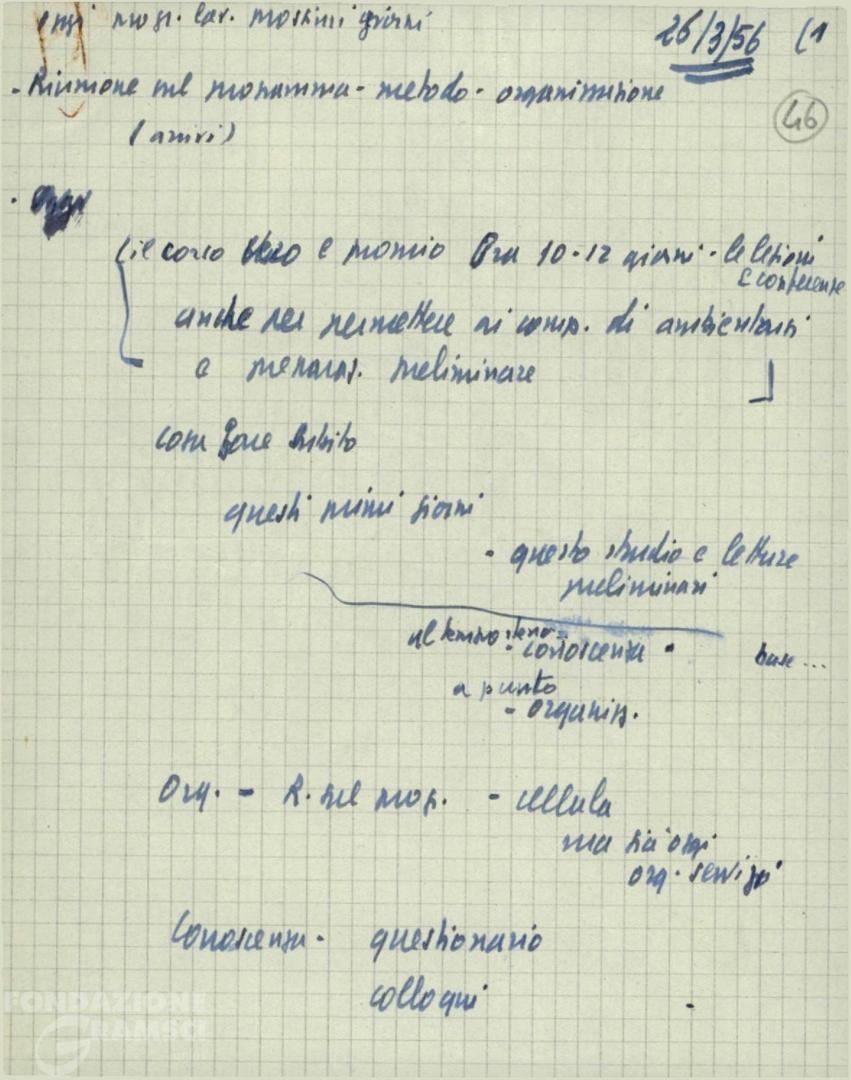 oggi progr. lav. prossimi giorni
26/3/56 (1
- Riunione sul programma - metodo - organizzazione
46
(arrivi)
· Oggi
(il corso vero e proprio fra 10-12 giorni - le lezioni
e conferenze
anche per permettere ai comp. di ambientarsi
e preparaz. preliminare
cosa fare subito
questi primi giorni
- questo studio e letture
preliminari
al tempo stesso =
- conoscenza -
base...
a punto
- organizz.
Org. - R. sul progr. - cellula
ma già oggi
org. servizi
Conoscenza - questionario
colloqui
FONDAZIONE
GRAMSCI